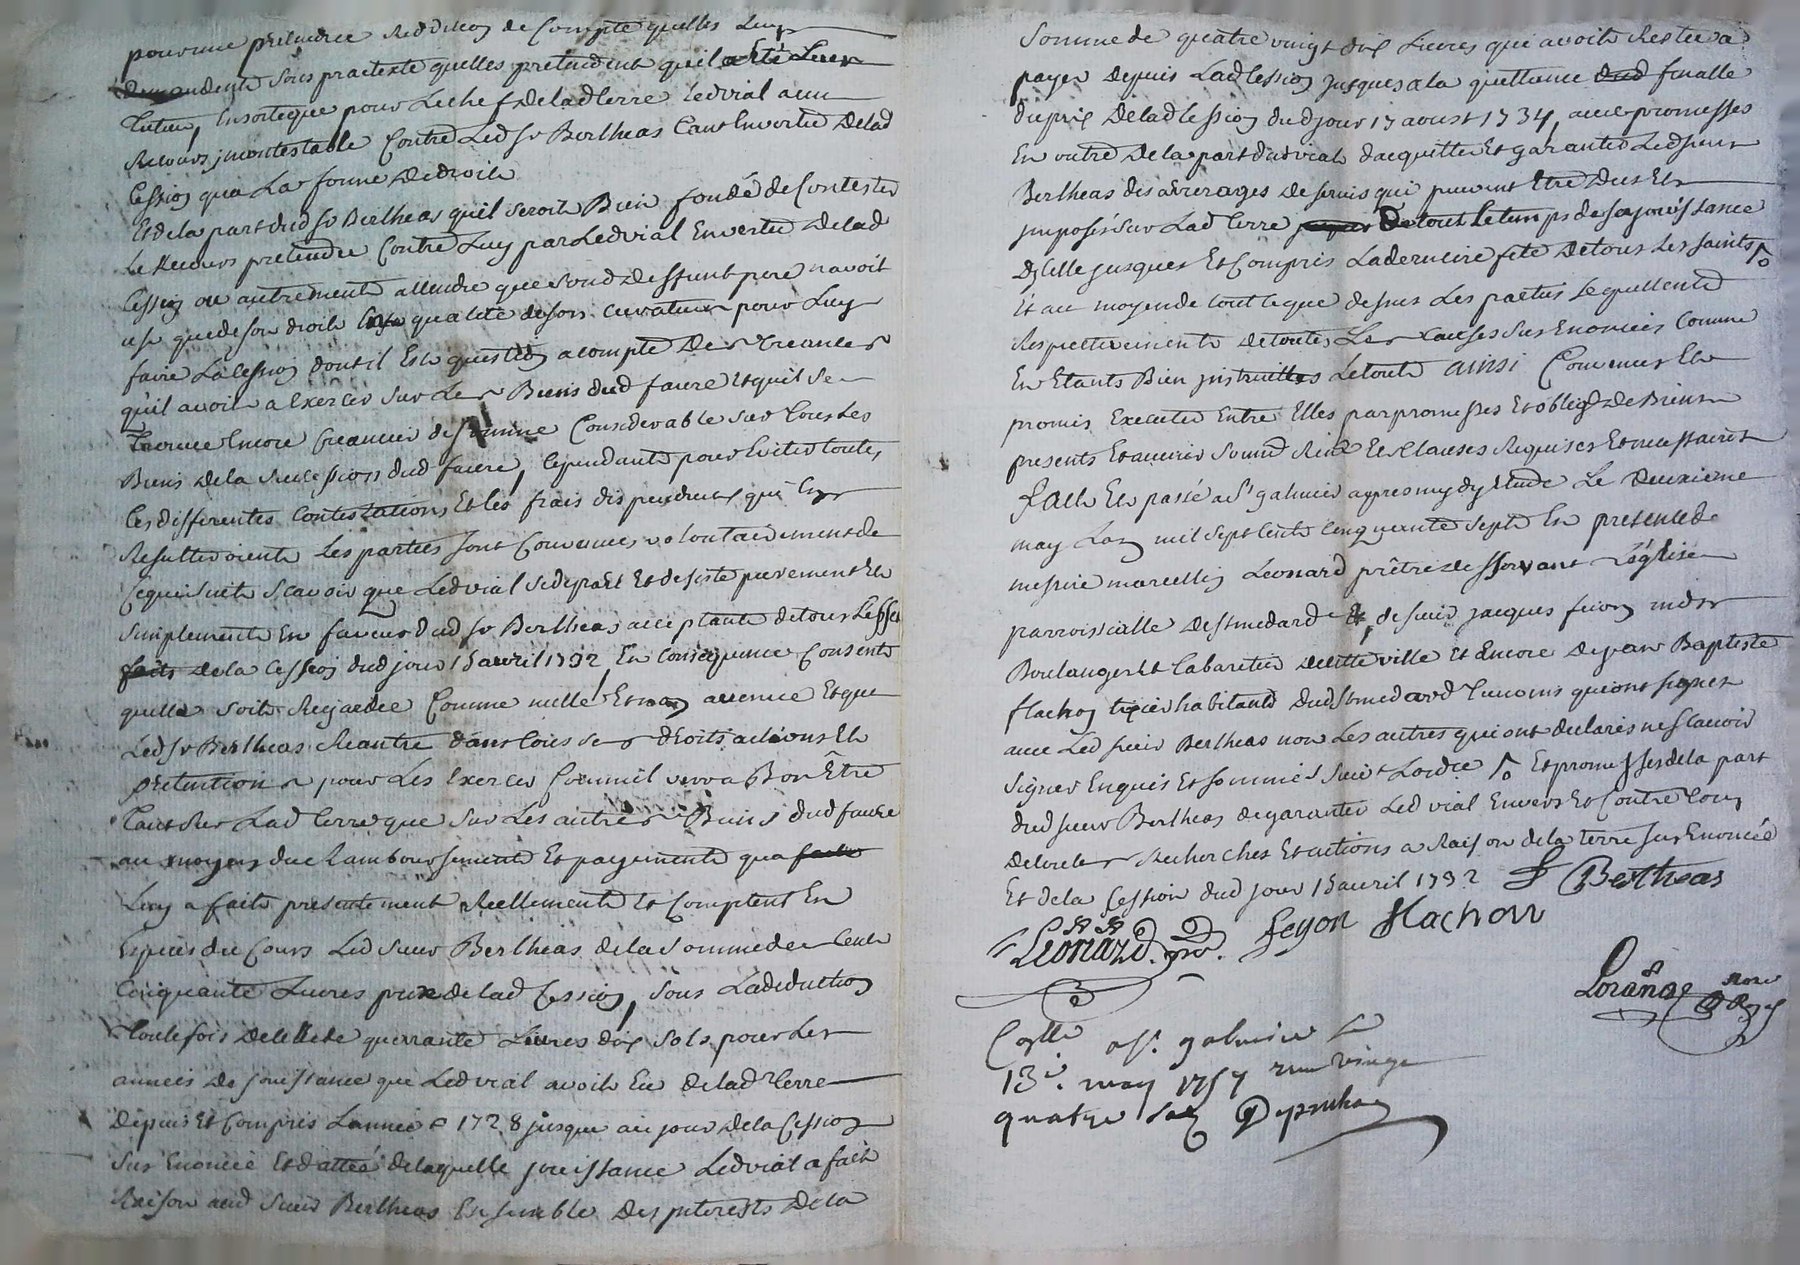 pour une pretendüe Reddition de Compte quelles Luy
demandent sous praetexte quelles pretendent quil a été Leur
Tuteur, Ensorteque pour Le chef de lad terre Led vial a un
Recours jncontestable Contre Led Sr Bertheas tant En vertu de lad
Cession qua La forme de droit
Et de la part dud Sr Bertheas quil seroit Bien fondé de Contester
Le Recours pretendu Contre Luy par Led vial En vertu de lad
Cession ou autrement attendre que Sond deffunt pere navoit
usé que de son droit qualité de son curateur pour Luy
faire La Cession dont il Est question a compte des Creances
quil avoit a Exercer sur Les Biens dud faure Et quil se
trouve Encore Creancier de somme Considerable sur tous Les
Biens de la Succession dud faure, Cependant pour Eviter toutes
Ces differentes Contestations Et les frais dispendieux qui En
Resulteroient Les parties sont Convenues volontairement de
Ce qui suit scavoir que Led vial se depart Et desiste purement Et
simplement En faveur dud Sr Bertheas acceptant de tous Les effets
faits de la Cession dud jour 15 avril 1732 En Consequence Consent
quelle soit Regardée Comme nulle Et non avenue Et que
Led Sr Bertheas Reantre dans tous ses droits actions Et
pretentions pour Les Exercer Comme il verra Bon Être
tant sur Lad terre que sur Les autres Biens dud faure
au moyen du Rambourssement Et payement qua fait
Luy a fait presentement Reellement Et Comptent En
Espéces du Cours Led Sieur Bertheas de la somme de Cent
Cinquante Livres prix de lad Cession, sous La deduction
toutefois de celle de quarante Livres dix sols pour Les
années de jouissance que Led vial avoit Eu de lad terre
depuis Et Compris Lannée 1728 jusque au jour de la Cession
sus Enoncée Et dattée de laquelle jouissance Led vial a fait
Raison aud Sieur Bertheas Ensemble des jnterests de la
Somme de quatre vingt dix Livres qui avoit Restée a
payer depuis Lad Cession jusques a la quittance dud finalle
du prix de lad Cession dud jour 17 aoust 1734, avec promesses
En outre de la part dud vial dacquitter Et garantir Led sieur
Bertheas des arrerages de servis qui peuvent Être Dus Et
jmposés sur Lad terre De tout Le temps de sa jouissance
Dicelle jusques Et Compris La derniere fête De tous Les saints
Et au moyen de tout ce que dessus Les parties se quittent
Respectivement de toutes Les causes sus Enoncées Comme
En Etants Bien jnstruittes Le tout ainsi Convenu Et
promis Executer Entre Elles par promesses Et oblig de Biens
presents Et avenir soumis Et Clauses Requises Et necessaires
fait Et passé a St galmier apres midy Etude Le deuxieme
may Lan mil sept Cent Cinquante sept En presence de
messire marcellin Leonard prêtre desservant Léglise
parroissialle de St medard Et de sieur jacques feion mdr
Boulanger Et Cabaretier de cette ville Et Encore de jean Baptiste
flachon tixier habitant dud St medard temoins qui ont signer
avec Led sieur Bertheas non Les autres qui ont declarés ne scavoir
signer Enquis Et sommés suivt Lordce Et promesses de la part
dud sieur Bertheas de garantir Led vial Envers Et Contre tous
de toutes Recherches Et actions a Raison de la terre sus Enoncée
Et de la Cession dud jour 15 avril 1732 Bertheas
Leonard. ptre. feyon Flachon
Lorange nore Royal
Collé a St. galmier Le
13e. may 1757 vingt
quatre